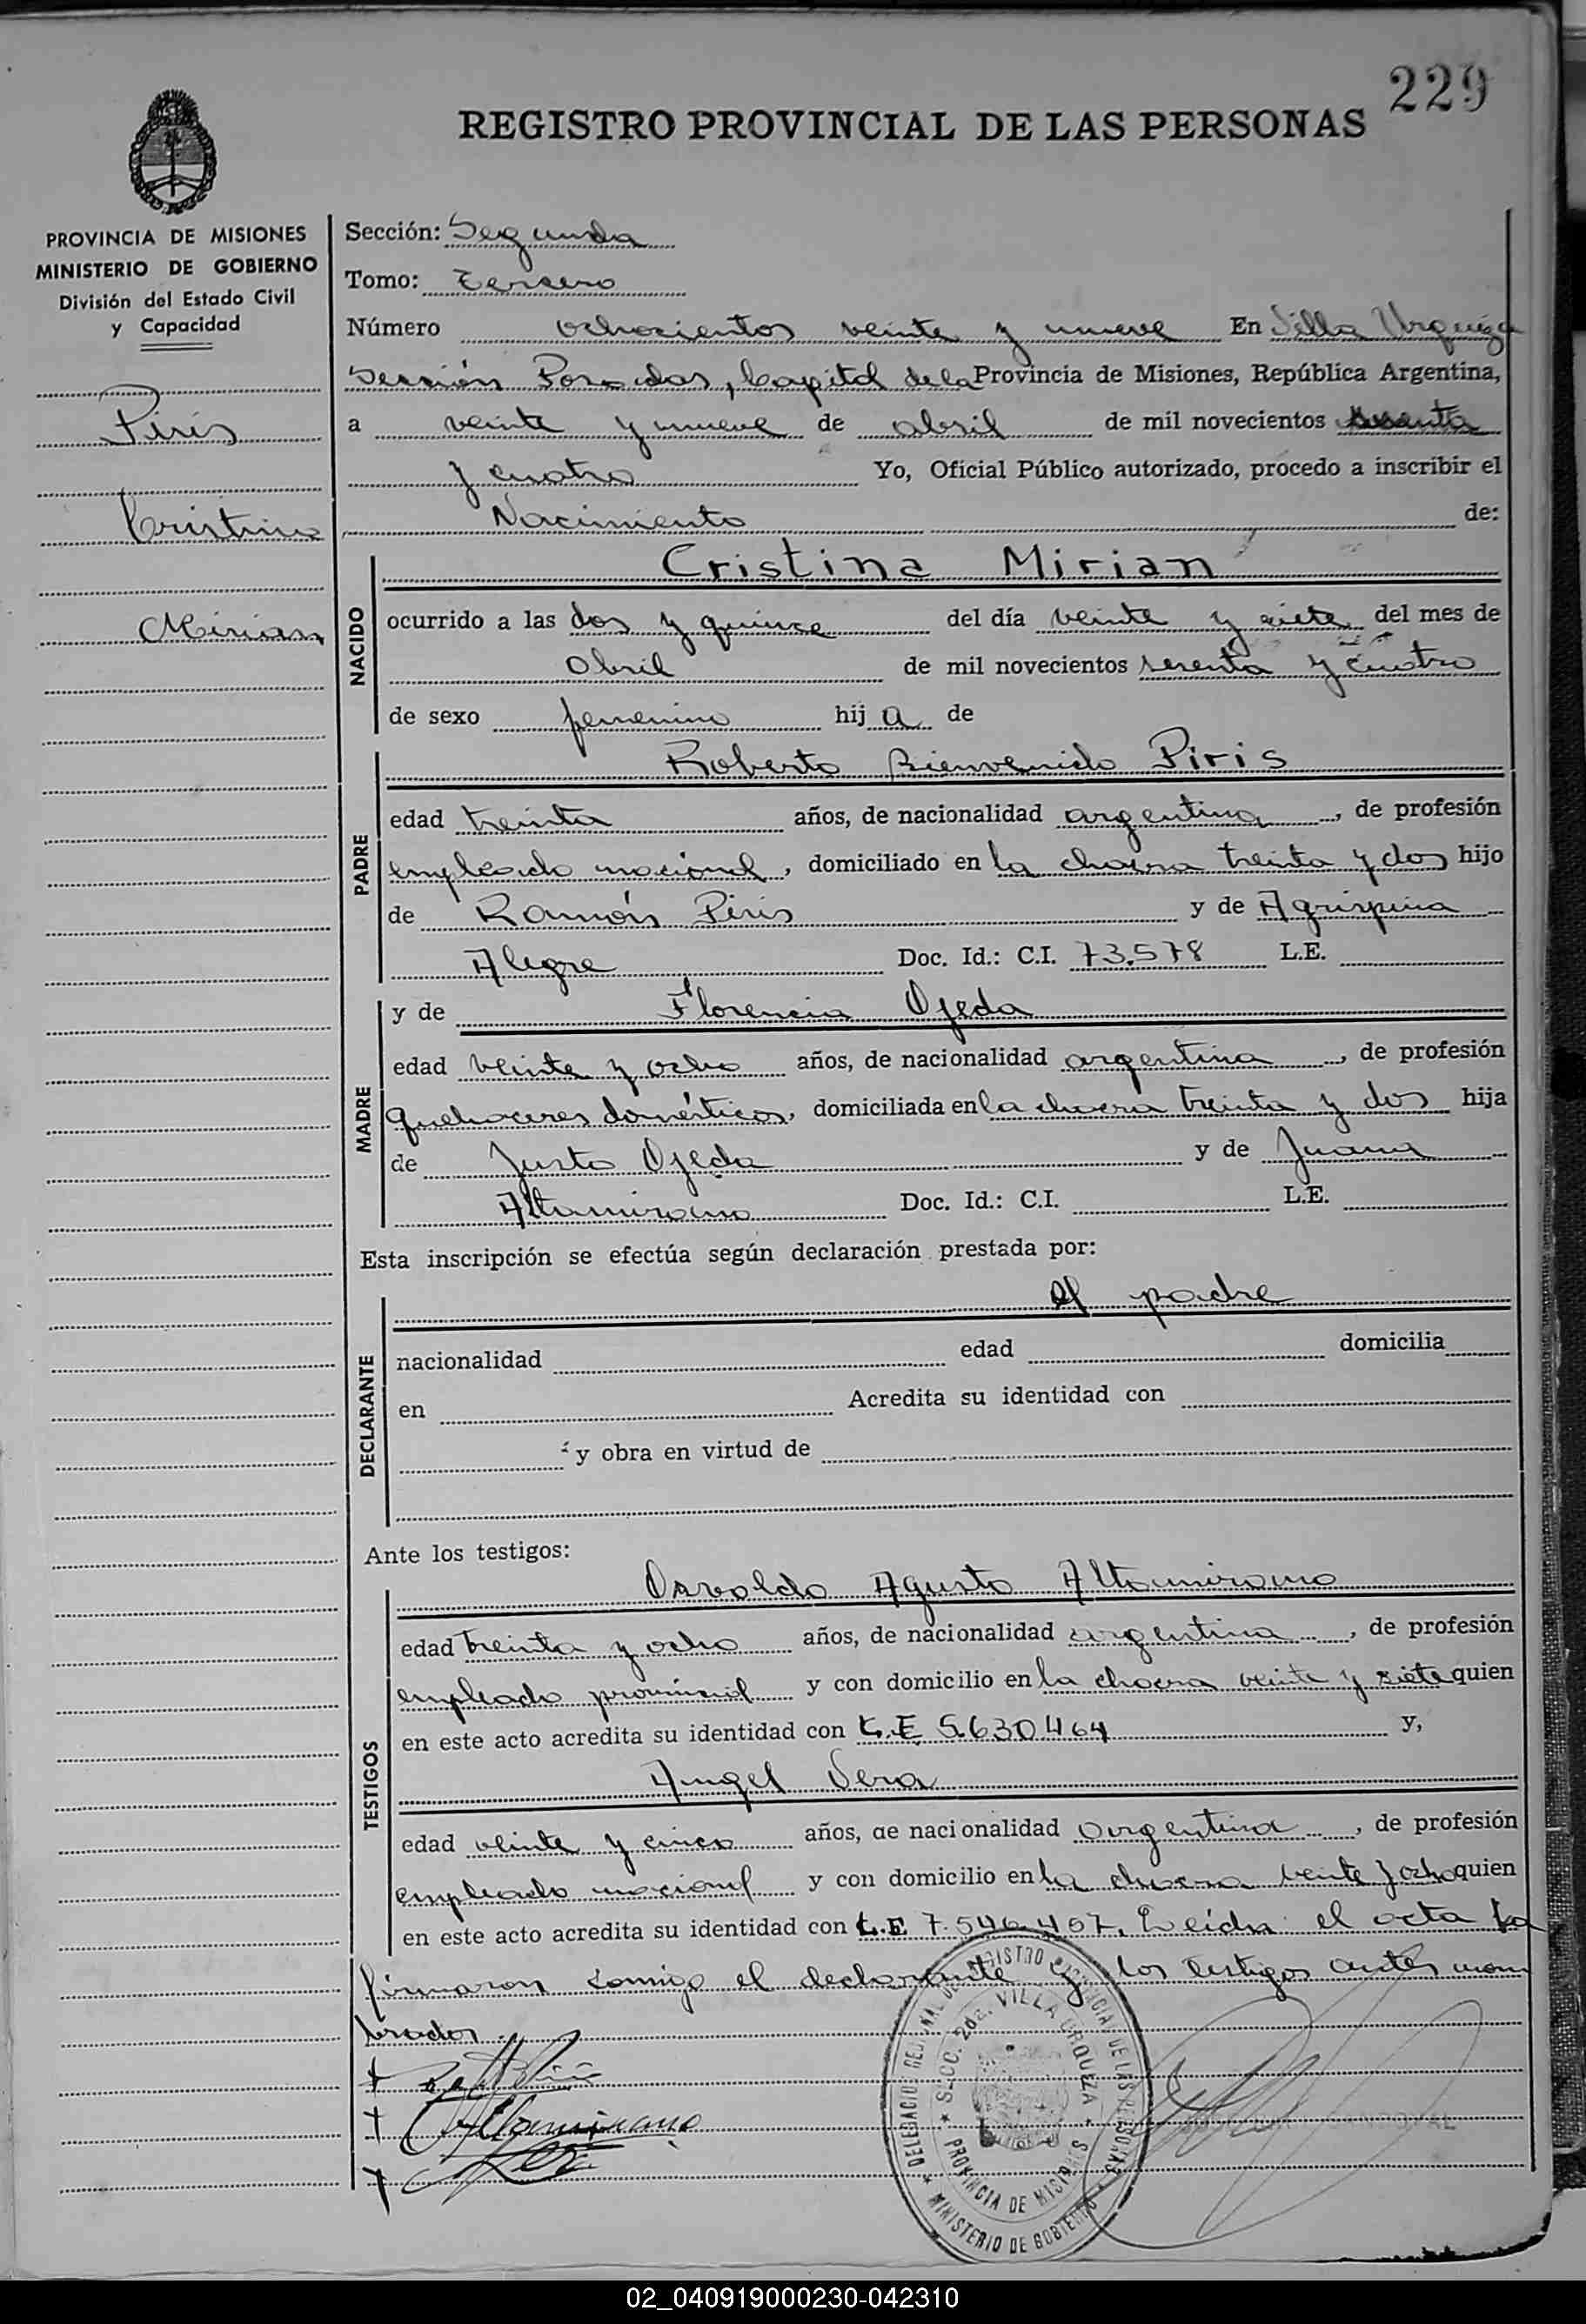 229
REGISTRO PROVINCIAL DE LAS PERSONAS
PROVINCIA DE MISIONES
MINISTERIO DE GOBIERNO
División del Estado Civil
y Capacidad
Piris
Cristina
Mirian
Sección: Segunda
Tomo: tercero
Número ochocientos veinte y nueve En Villa Urquiza
Sección Posadas, Capital de la Provincia de Misiones, República Argentina,
a veinte y nueve de abril de mil novecientos sesenta
y cuatro Yo, Oficial Público autorizado, procedo a inscribir el
Nacimiento de:
NACIDO
Cristina Mirian
ocurrido a las dos y quince del día veinte y siete del mes de
abril de mil novecientos sesenta y cuatro
de sexo femenino hija de
PADRE
Roberto Bienvenido Piris
edad treinta años, de nacionalidad argentina, de profesión
empleado nacional, domiciliado en la chacra treinta y dos hijo
de Ramón Piris y de Agrispina
Alegre Doc. Id.: C.I. 73.578 L.E.
MADRE
y de Florencia Ojeda
edad veinte y ocho años, de nacionalidad argentina, de profesión
quehaceres domésticos, domiciliada en la chacra treinta y dos hija
de Justo Ojeda y de Juana
Altamirano Doc. Id.: C.I. L.E.
Esta inscripción se efectúa según declaración prestada por:
DECLARANTE
el padre
nacionalidad edad domicilia
en Acredita su identidad con
y obra en virtud de
Ante los testigos:
TESTIGOS
Osvaldo Agusto Altamirano
edad treinta y ocho años, de nacionalidad argentina, de profesión
empleado provincial y con domicilio en la chacra veinte y siete quien
en este acto acredita su identidad con L.E 5.630.464 y,
Angel Vera
edad veinte y cinco años, de nacionalidad argentina, de profesión
empleado nacional y con domicilio en la chacra veinte y ocho quien
en este acto acredita su identidad con L.E 7.546.407. Leída el acta la
firmaron conmigo el declarante y los testigos antes nom
brados.
Altamirano
DELEGACION REGIONAL DEL REGISTRO PROVINCIAL DE LAS PERSONAS
SECC. 2da. VILLA URQUIZA
PROVINCIA DE MISIONES
MINISTERIO DE GOBIERNO
02_040919000230-042310